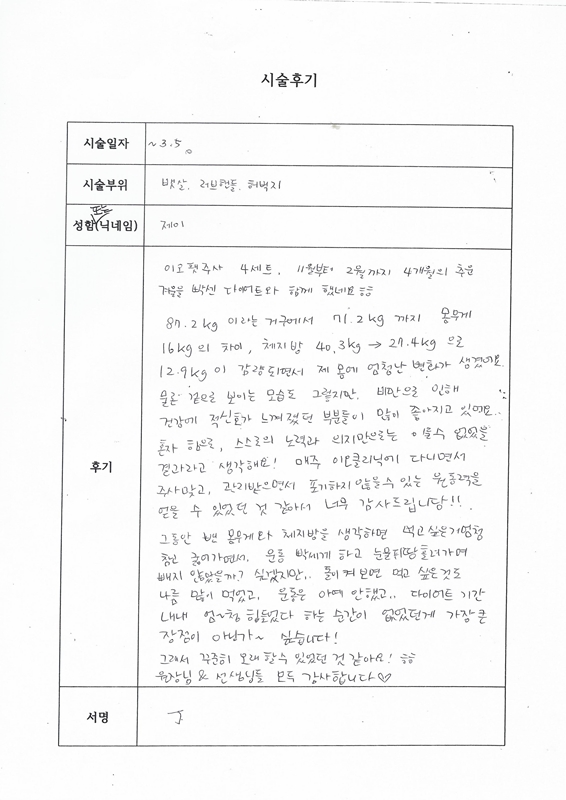 시술후기
시술일자 ~3.5.
시술부위 뱃살. 러브핸들. 허벅지
또는
성함(닉네임) 제이
후기
이오팻주사 4세트. 11월부터 2월까지 4개월의 추운
겨울을 빡센 다이어트와 함께 했네요 ㅎㅎ
87.2kg 이라는 거구에서 71.2kg 까지 몸무게
16kg의 차이, 체지방 40.3kg → 27.4kg 으로
12.9kg이 감량되면서 제 몸에 엄청난 변화가 생겼어요.
물론 겉으로 보이는 모습도 그렇지만. 비만으로 인해
건강에 적신호가 느껴졌던 부분들이 많이 좋아지고 있어요..
혼자 힘으로, 스스로의 노력과 의지만으로는 이룰수 없었을
결과라고 생각해요! 매주 이오클리닉에 다니면서
주사맞고, 관리받으면서 포기하지 않을 수 있는 원동력을
얻을 수 있었던 것 같아서 너무 감사드립니당!!
그동안 뺀 몸무게와 체지방을 생각하면 먹고싶은거 엄청
참고 굶어가면서. 운동 빡세게 하고 눈물 피땀 흘려가며
빼지 않았을까? 싶겠지만.. 돌이켜보면 먹고 싶은것도
나름 많이 먹었고, 운동은 아예 안했고.. 다이어트 기간
내내 엄~청 힘들었다 하는 순간이 없었던게 가장 큰
장점이 아닌가~ 싶습니다!
그래서 꾸준히 오래 할 수 있었던 것 같아요! ㅎㅎ
원장님 & 선생님들 모두 감사합니다♡
서명 J